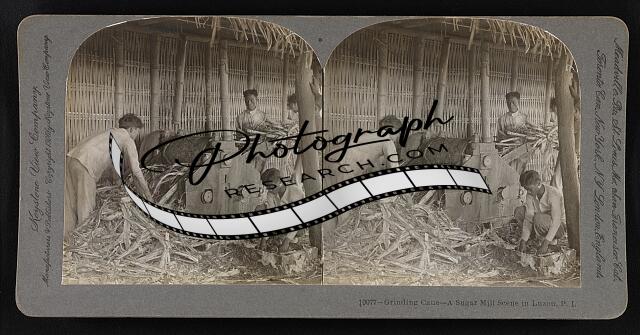 Keystone View Company
Manufacturers & Publishers Copyright Keystone View Company
Photograph
RESEARCH.COM
Meadville, Pa., St. Louis, Mo.
Toronto Can., New York, N.Y. London, England.
10077—Grinding Cane—A Sugar Mill Scene in Luzon, P. I.